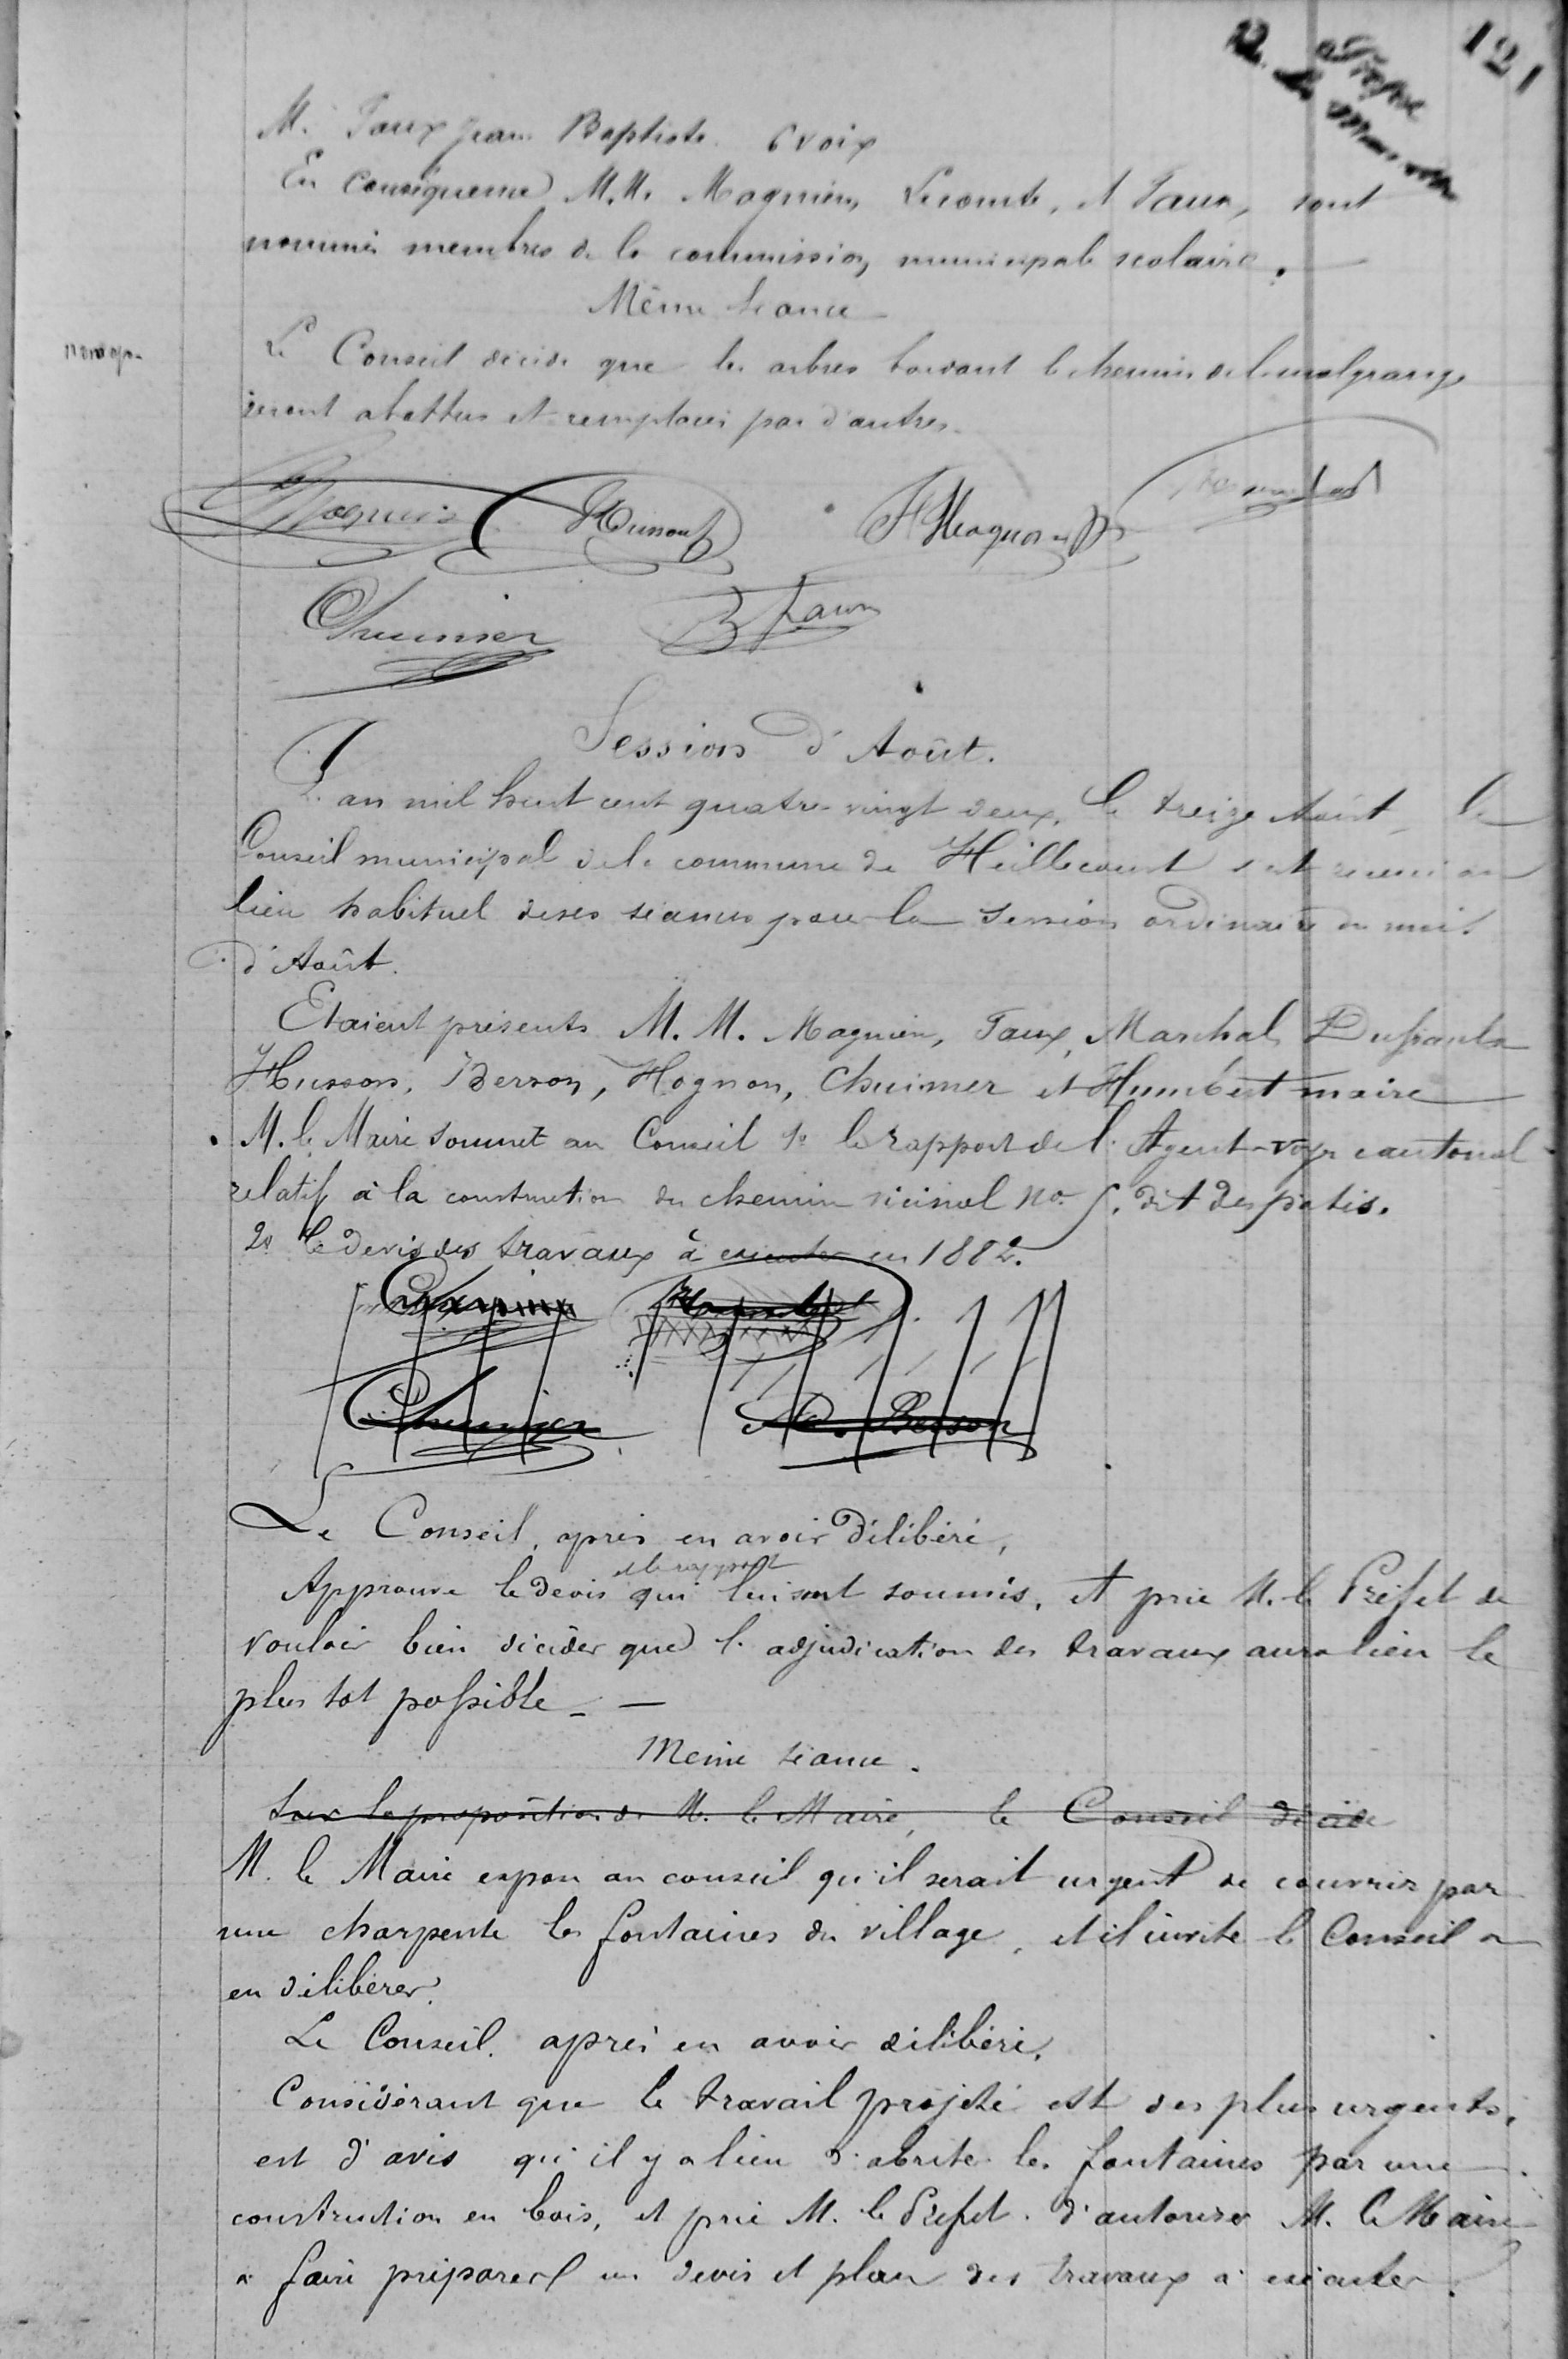 121
M. Taux Jean Baptiste. 6 voix
En conséquence M.M. Magnien, Lecomte, et Taux, sont
nommés membres de la commission municipale scolaire.
Même séance
Le Conseil décide que les arbres bordant le chemin de la malgrange
seront abattus et remplacés par d'autres.
Magnien Husson F Hognon
Chuimer B Taux
Session d'Août.
L'an mil huit cent quatre-vingt deux, le treize Août, le
Conseil municipal de la commune de Heillecourt s'est réuni au
lieu habituel de ses séances pour la session ordinaire du mois
d'Août.
Etaient présents M.M. Magnien, Taux, Marchal,
Husson, Berson, Hognon, Chuimer et Humbert maire
M. le Maire soumet au Conseil 1º le rapport de l'Agent-voyer cantonal
relatif à la construction du chemin vicinal no. 5. dit des patis.
2º le devis des travaux à exécuter en 1882.
Humbert
Chuimer Berson
Le Conseil, après en avoir délibéré,
et le rapport
Approuve le devis qui lui sont soumis, et prie M. le Préfet de
vouloir bien décider que l'adjudication des travaux aura lieu le
plus tot possible. —
Même séance.
Sur la proposition de M. le Maire, le Conseil décide
M. le Maire expose au conseil qu'il serait urgent de couvrir par
une charpente les fontaines du village, et il invite le Conseil a
en délibérer.
Le Conseil, après en avoir délibéré,
Considérant que le travail projeté est des plus urgents,
est d'avis qu'il y a lieu d'abriter les fontaines par une
construction en bois, et prie M. le Préfet d'autoriser M. le Maire
a faire préparer un devis et plan des travaux a exécuter.